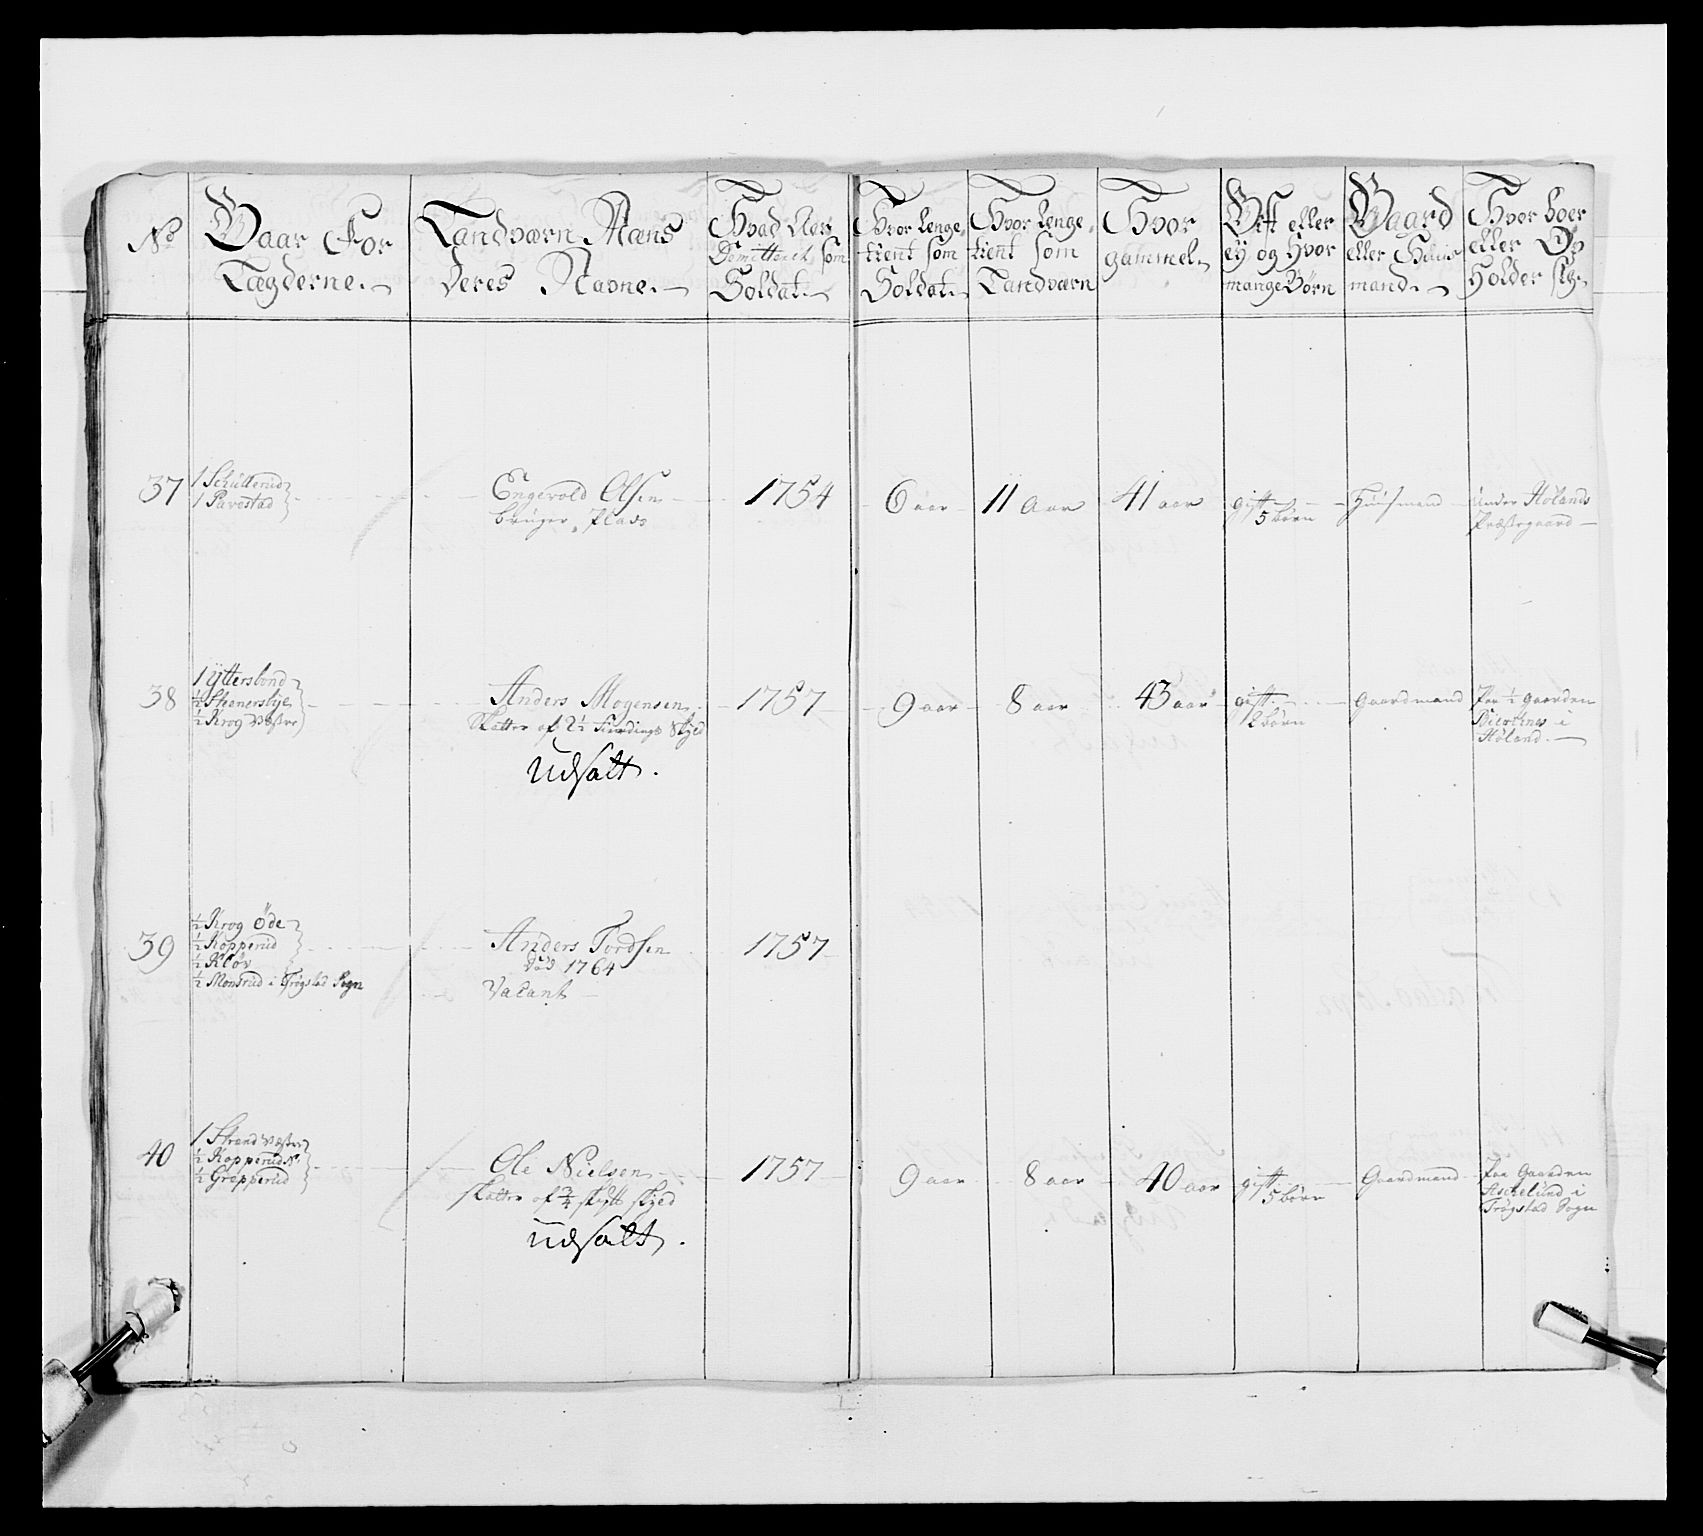 No
Gaar For
Lægderne.
Landværn Mæns
deres Navne.
Hvad Aar
Demitteret som
Soldat.
Hvor lenge
tient som
Soldat.
Hvor lenge
tient som
Landværn
Hvor
gammel.
Gift eller
ey og hvor
mange Börn
Gaard
eller Huus
mand.
Hvor boer
eller Op
holder sig.
37
1 Schullerud
1 Pavestad
Engevold Olsen
bruger Plads
1754
6 aar
11 Aar
41 aar
gift
5 börn
Huusmand
Under Hölands
Præstegaard
38
1 Ytterslond
½ Steenersbye
½ Krog Westre
Anders Mogensen
Skatter af 2½ Fierdings Skyld
Udsatt.
1757
9 aar
8 aar
43 aar
gift
2 börn
Gaardmand
Paa ½ gaarden
i
Höland.
39
½ Krog Öde
½ Kopperud
½ Klöv
½ Monsrud i Trögstad Sogn
Anders Tordsen
död 1764
Vacant
1757
40
1 Strand Væstre
½ Kopperud N.
½ Grepperud
Ole Nielsen
skatter af ¾ skytt skyld
udsatt.
1757
9 aar
8 aar
40 aar
gift
5 börn
Gaardmand
Paa Gaarden
Aschelund i
Trögstad Sogn